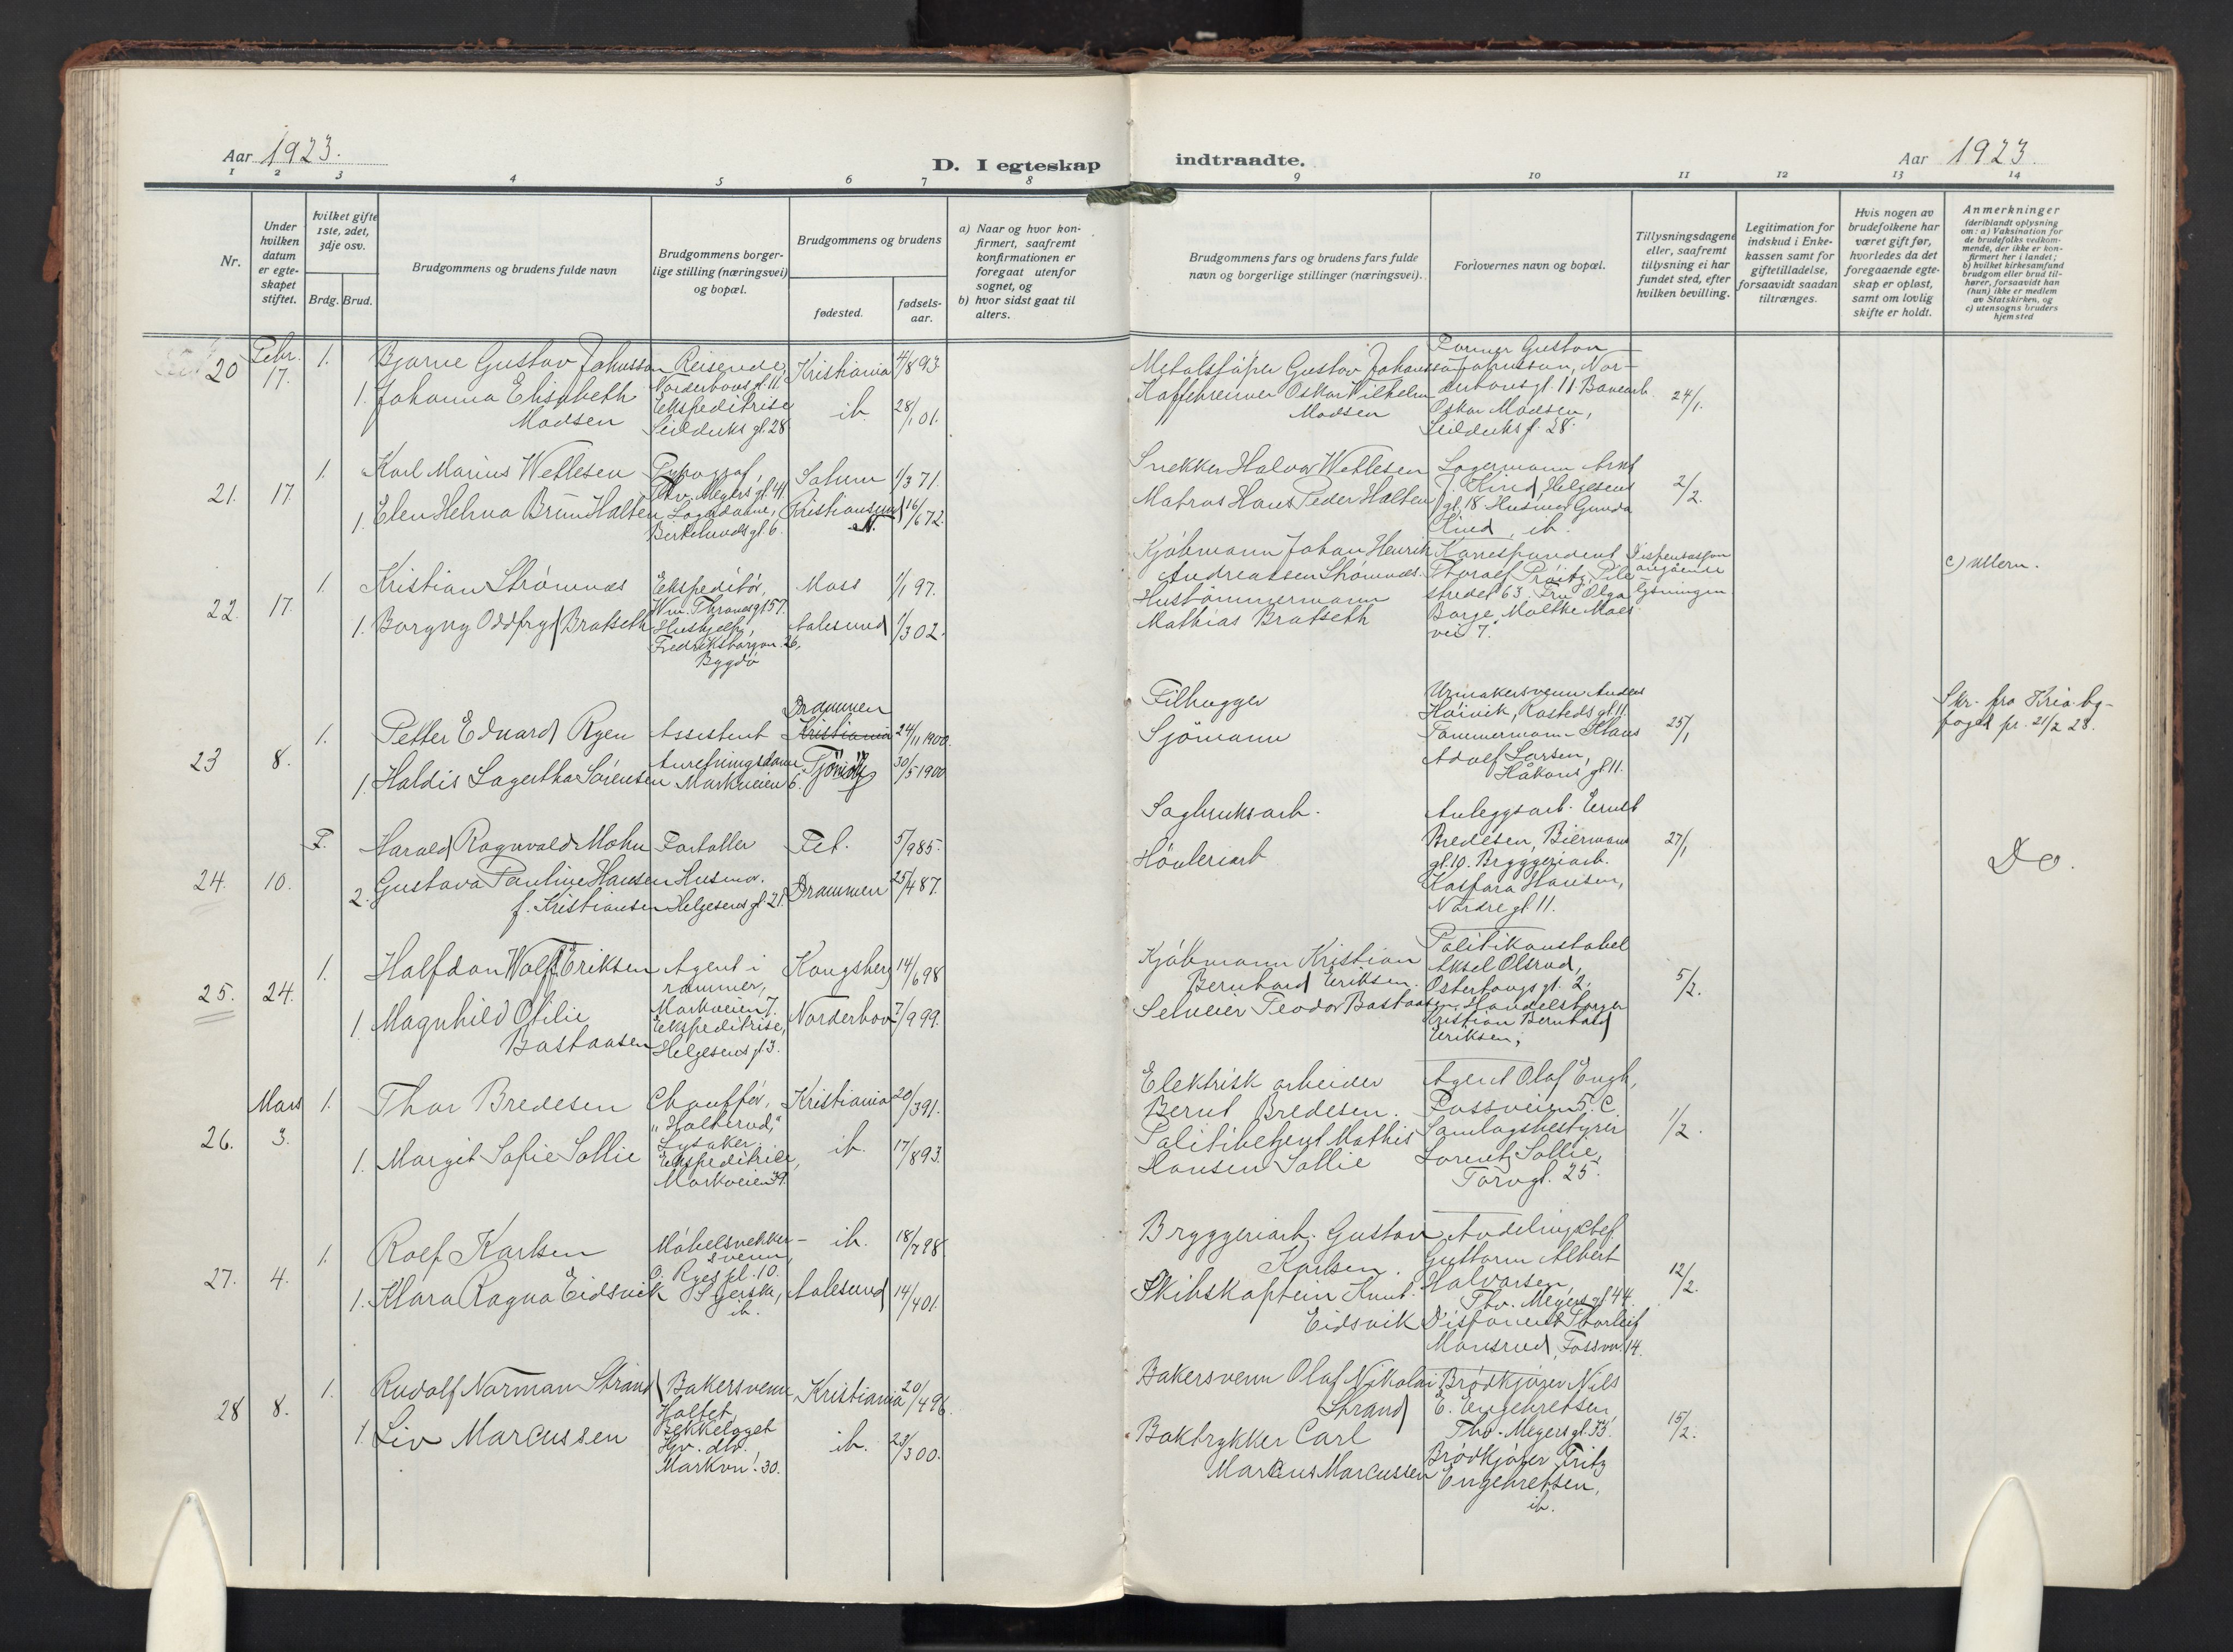 Aar 1923.
D. I egteskap indtraadte.
Aar 1923.
1 2 3 4 5 6 7 8 9 10 11 12 13 14
Nr.
Under hvilken datum er egteskapet stiftet.
hvilket gifte 1ste, 2det, 3dje osv.
Brdg. Brud.
Brudgommens og brudens fulde navn
Brudgommens borgerlige stilling (næringsvei) og bopæl.
Brudgommens og brudens
fødested.
fødselsaar.
a) Naar og hvor konfirmert, saafremt konfirmationen er foregaat utenfor sognet, og
b) hvor sidst gaat til alters.
Brudgommens fars og brudens fars fulde navn og borgerlige stillinger (næringsvei).
Forlovernes navn og bopæl.
Tillysningsdagene eller, saafremt tillysning ei har fundet sted, efter hvilken bevilling.
Legitimation for indskud i Enkekassen samt for giftetilladelse, forsaavidt saadan tiltrænges.
Hvis nogen av brudefolkene har været gift før, hvorledes da det foregaaende egteskap er opløst, samt om lovlig skifte er holdt.
Anmerkninger
(deriblandt oplysning om: a) Vaksination for de brudefolks vedkommende, der ikke er konfirmert her i landet;
b) hvilket kirkesamfund brudgom eller brud tilhører, forsaavidt han (hun) ikke er medlem av Statskirken, og
c) utensogns bruders hjemsted
20 Febr. 17.
1. Bjarne Gustav Johnsson Reisende, Norderhovs gt. 11. Kristiania 4/8 93.
1. Johanna Elisabeth Madsen Ekspeditrise Seilduks gt. 28 ib. 28/1 01.
Gustav Johansson
Kaffebrenner Oskar Wilhelm Madsen
Former Gustav Johansson, Norderhovsgt. 11.
Oskar Madsen, Seilduksg. 28.
24/1.
21. 17.
1. Karl Marius Wetlesen Typograf, Thv. Meyers gt. 41. 1/3 71.
1. Elen Helma Bruun Halten Birkelunds gt. 6. Kristiansund N. 16/6 72.
Snekker Halvor Wetlesen
Matros Hans Peder Halten
Lagermann
J. Kind, Helgesens gt. 18. Husmor Gunda Kind, ib.
2/2.
22. 17.
1. Kristian Strømnes Ekspeditør, Wm. Thranesgt 57. Moss 1/1 97.
1. Borgny Oddfryd Bratseth Hushjelp, Fredriksborgvn. 26, Bygdø Aalesund 1/3 02.
Kjøbmann Johan Henrik Andreassen Strømnes.
Hustømmermann Mathias Bratseth
Korrespondent Thoralf Prøitz, Pilestredet 63. Fru Olga Borge, Moltke Moes vei 7.
Dispensasjon angående lysningen
c) Ullern.
23 8.
1. Petter Edvard Ryen Assistent Drammen Kristiania 24/11 1900.
1. Haldis Lagertha Sørensen Anretningsdame Markveien 6. Tjømø 30/5 1900
Filhugger
Sjømann
Urmakersvenn Anders Høivik, Rosteds gt 11.
Tømmermann Klaus Adolf Larsen, Håkons gt 11.
25/1
Skr. fra Kria byfoged pr. 21/2 28.
24. 10.
F. Harald Ragnvald Mohn Fortaller Fet. 5/9 85.
2. Gustava Pauline Hansen f. Kristiansen Husmor. Helgesens gt. 21. Drammen 25/4 87.
Sagbruksarb.
Høvleriarb
Anleggsarb. Ernst Bredesen, Biermans gt. 10. Bryggeriarb. Kaspara Hansen, Nordre gt. 11.
27/1
Do.
25. 24.
1. Halfdan Wolf Eriksen Agent i rammer, Markveien 7. Kongsberg 14/6 98
1. Magnhild Otilie Bastaasen Ekspeditrise, Helgesens gt 3. Norderhov 7/9 99.
Kjøbmann Kristian Bernhard Eriksen.
Selveier Teodor Bastaasen
Politikonstabel Aksel Olsrud, Østerhaugsgt. 2.
Handelsborger Kristian Bernhard Eriksen,
5/2.
26. Mars 3.
1. Thor Bredesen Chauffør, "Halterud," Lysaker Kristiania 20/3 91.
1. Margit Sofie Sollie Ekspeditrise, Markveien 39. ib. 17/8 93.
Elektrisk arbeider Bernt Bredesen.
Politibetjent Mathis Hansen Sollie
Agent Olaf Engh, Fossveien 5. C.
Samlagsbestyrer Lorentz Sollie, Torvgt. 25.
1/2.
27. 4.
1. Rolf Karlsen Møbelsnekkersvenn, O. Ryes pl. 10. ib. 18/7 98.
1. Klara Ragna Eidsvik Syerske, ib. Aalesund 14/4 01.
Bryggeriarb. Gustav Karlsen.
Skibskaptein Knut Eidsvik
Avdelingschef Guttorm Albert Halvorsen, Thv. Meyers gt 44.
Disponent Thorleif Monsrud, Fossvn. 14.
12/2.
28 8.
1. Rudolf Norman Strand Bakersvenn Holtet, Bekkelaget Kristiania 20/4 96.
1. Liv Marcussen Hv. dtr. Markvn. 30. ib. 23/3 00.
Bakersvenn Olaf Nikolai Strand
Boktrykker Carl Marius Marcussen
Brødkjører Nils E. Engebretsen Thv. Meyers gt. 33.
Brødkjører Fritz Engebretsen, ib.
15/2.